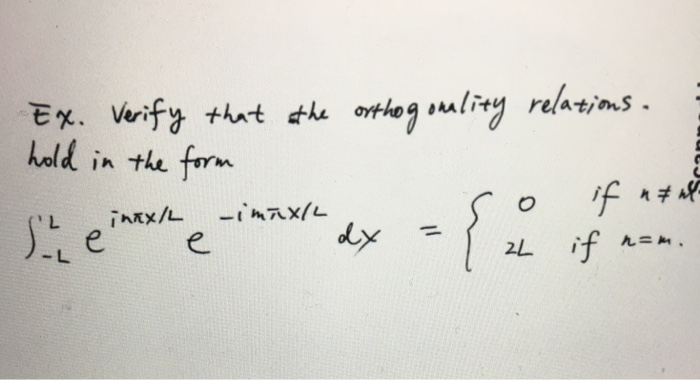 Ex. Verify that the orthogonality relations.
hold in the form
∫_{-L}^{L} e^{inπx/L} e^{-imπx/L} dx = { 0 if n≠m
2L if n=m.